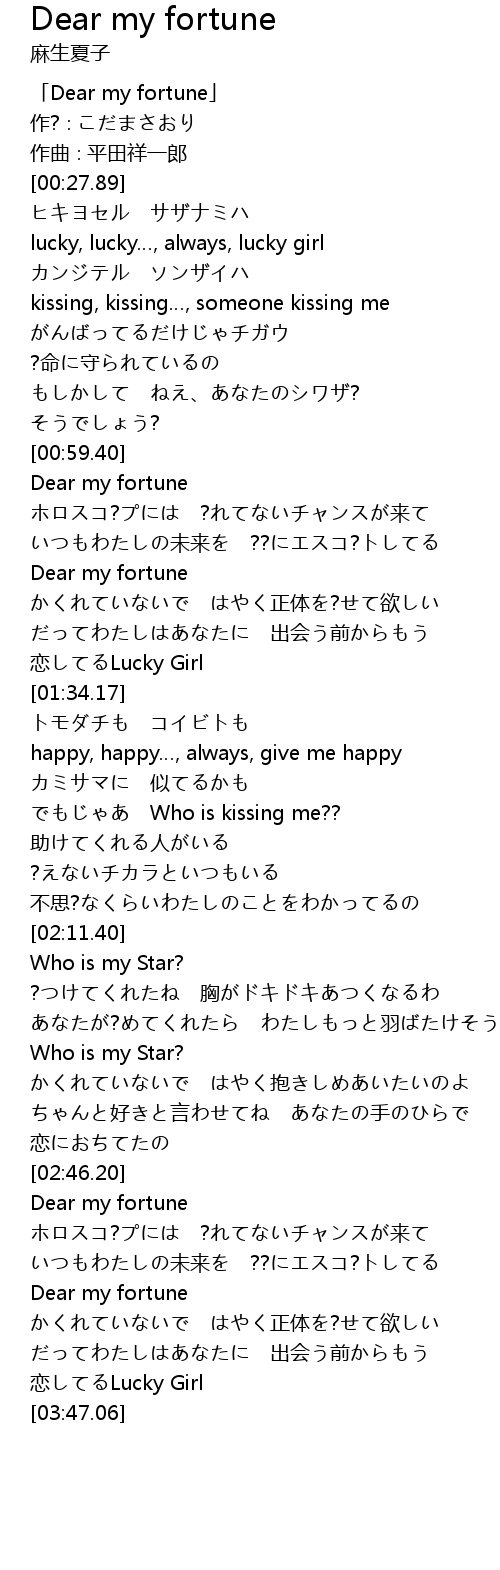 Dear my fortune
麻生夏子
「Dear my fortune」
作? : こだまさおり
作曲 : 平田祥一郎
[00:27.89]
ヒキヨセル　サザナミハ
lucky, lucky..., always, lucky girl
カンジテル　ソンザイハ
kissing, kissing..., someone kissing me
がんばってるだけじゃチガウ
?命に守られているの
もしかして　ねえ、あなたのシワザ?
そうでしょう?
[00:59.40]
Dear my fortune
ホロスコ?プには　?れてないチャンスが来て
いつもわたしの未来を　??にエスコ?トしてる
Dear my fortune
かくれていないで　はやく正体を?せて欲しい
だってわたしはあなたに　出会う前からもう
恋してるLucky Girl
[01:34.17]
トモダチも　コイビトも
happy, happy..., always, give me happy
カミサマに　似てるかも
でもじゃあ　Who is kissing me??
助けてくれる人がいる
?えないチカラといつもいる
不思?なくらいわたしのことをわかってるの
[02:11.40]
Who is my Star?
?つけてくれたね　胸がドキドキあつくなるわ
あなたが?めてくれたら　わたしもっと羽ばたけそう
Who is my Star?
かくれていないで　はやく抱きしめあいたいのよ
ちゃんと好きと言わせてね　あなたの手のひらで
恋におちてたの
[02:46.20]
Dear my fortune
ホロスコ?プには　?れてないチャンスが来て
いつもわたしの未来を　??にエスコ?トしてる
Dear my fortune
かくれていないで　はやく正体を?せて欲しい
だってわたしはあなたに　出会う前からもう
恋してるLucky Girl
[03:47.06]